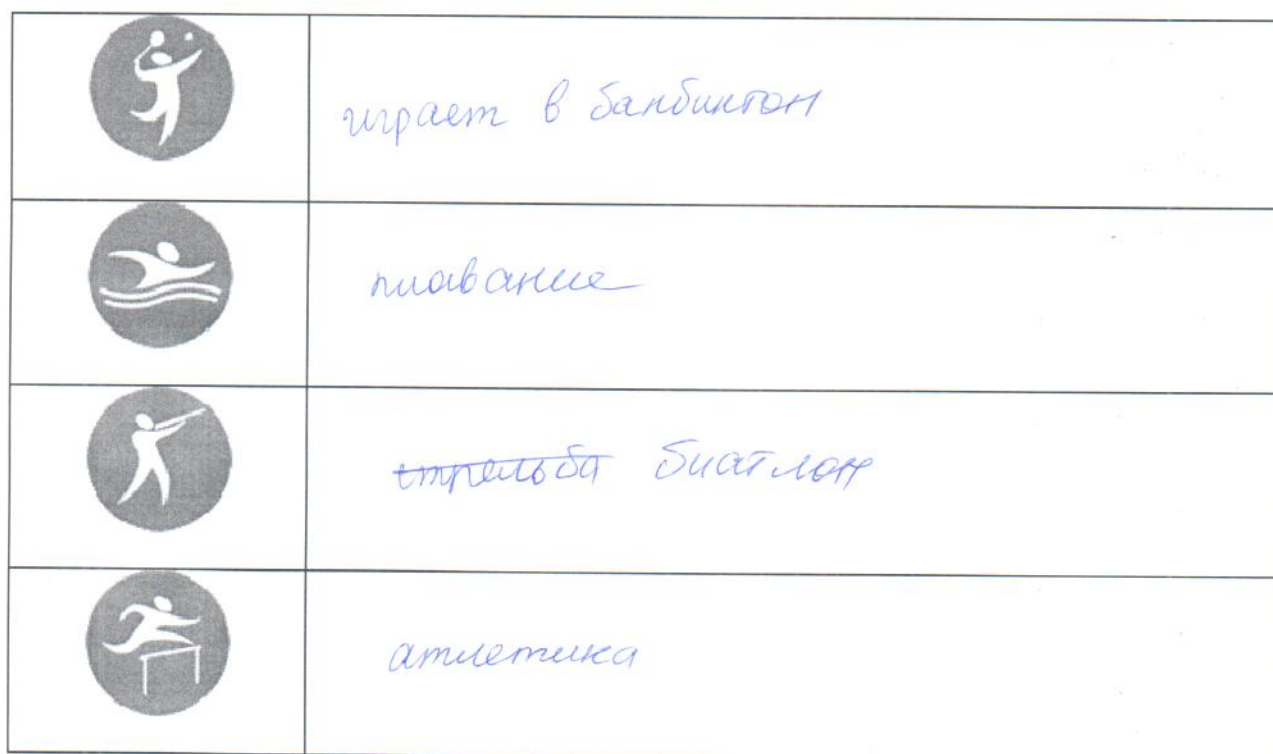 играет в банбинтон
плавание
стрельба биатлон
атлетика